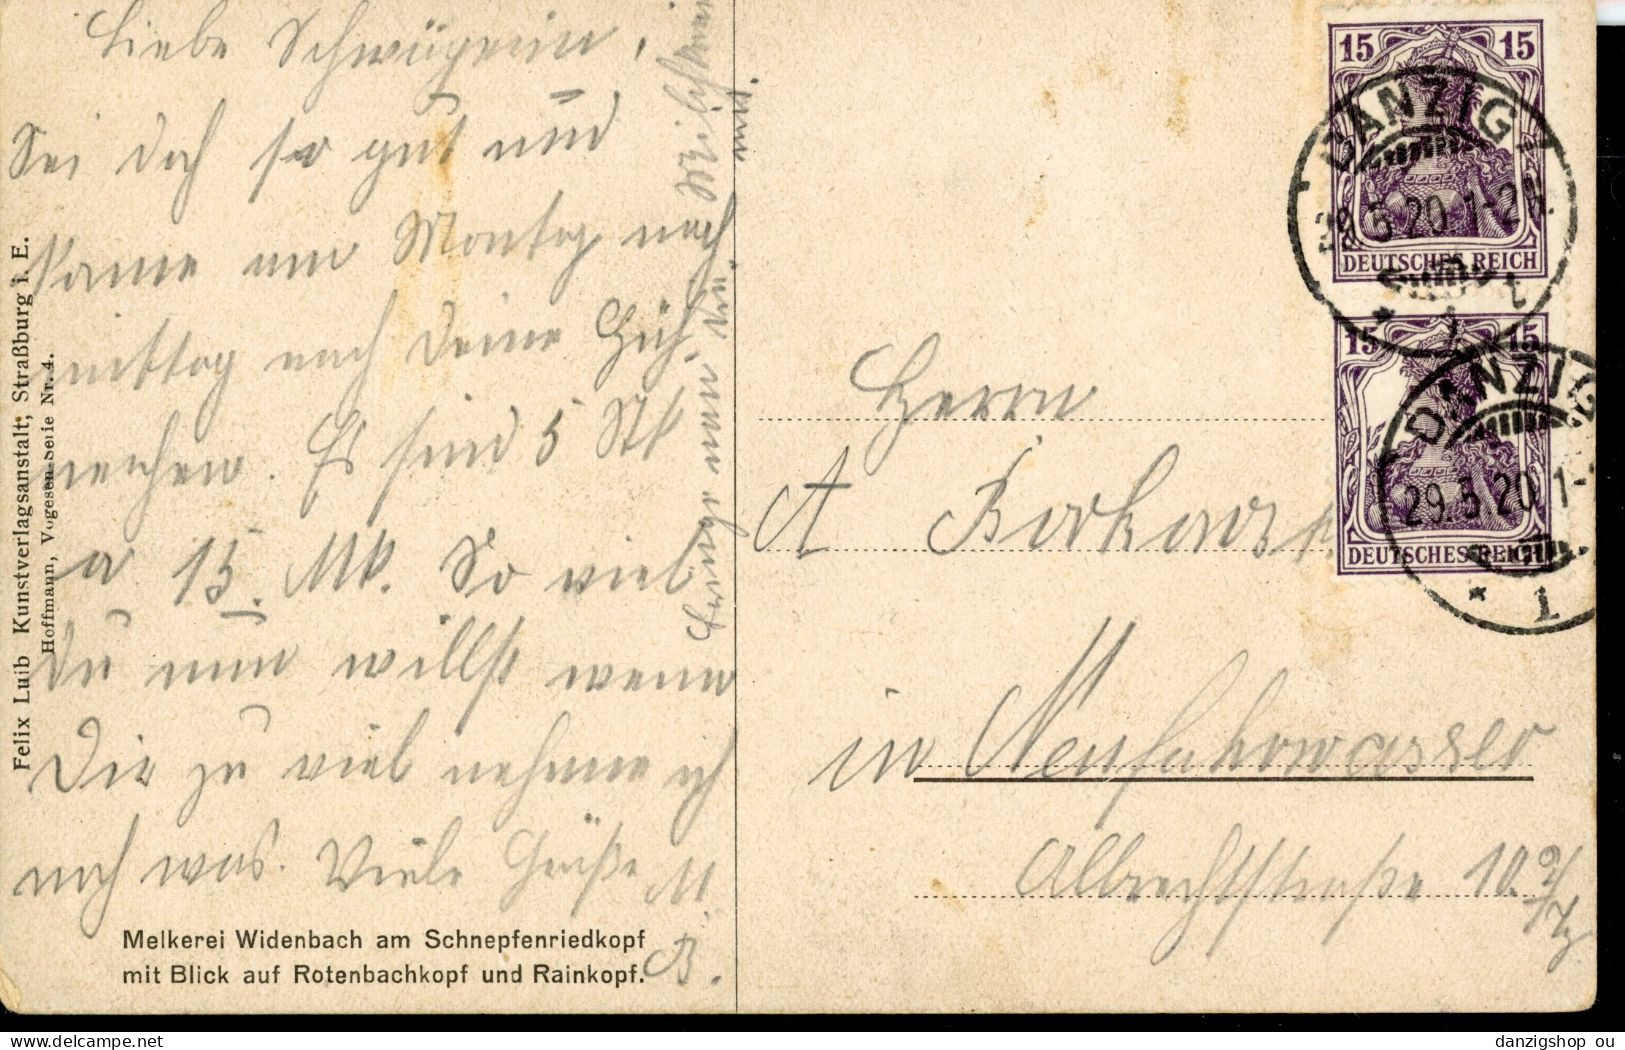 Liebe Schwägerin,
Sei doch so gut und
komme am Montag nach
mittag nach Deine Hüh-
nerchen. Es sind 5 Stk
a 15. Mk. So viel
Du nun willst wenn
Dir zu viel nehme ich
noch was. Viele Grüße M.
B.
Felix Luib Kunstverlagsanstalt, Straßburg i. E.
Hoffmann, Vogesen-Serie Nr. 4.
Melkerei Widenbach am Schnepfenriedkopf
mit Blick auf Rotenbachkopf und Rainkopf.
15 15
DEUTSCHES REICH
DANZIG
29.5.20. 1-2N.
* 1 t
15 15
DEUTSCHES REICH
DANZIG
29.5.20. 1-
* 1
Herrn
A
in Neufahrwasser
Albrechtstraße 10.
danzigshop ou